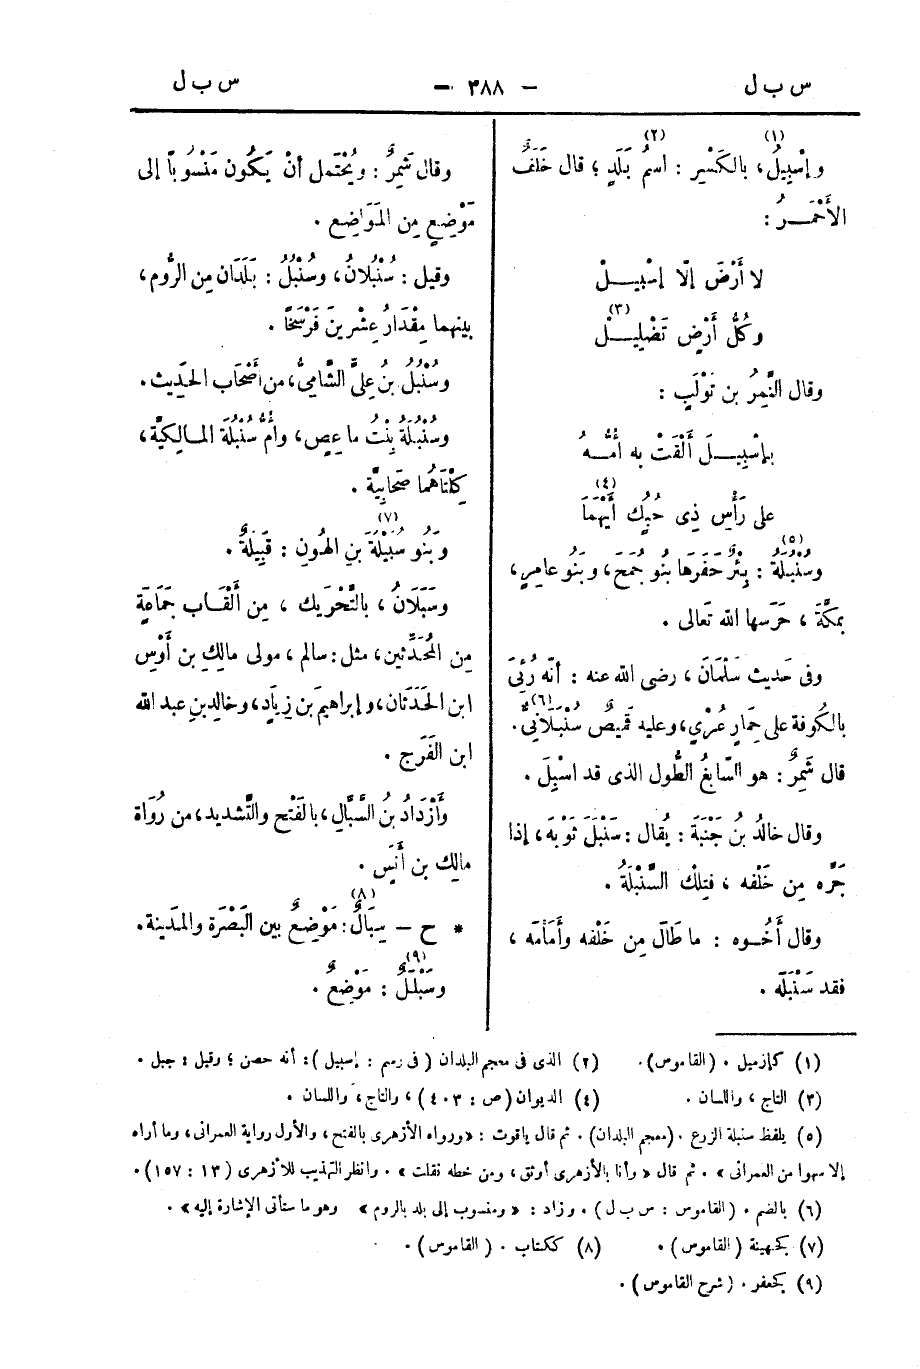 س ب ل
— ٣٨٨ —
س ب ل
وإسْبِيلُ(١)، بالكَسْرِ : اسمُ بَلَدٍ(٢) ؛ قال خَلَفٌ
الأَحْمَـــرُ :
لا أَرْضَ إلّا إسْبِيــــلْ
وَكُلُّ أَرْضٍ تَضْلِيـــلْ(٣)
وقال النَّمِرُ بن تَوْلَبٍ :
بإسْبِيـــلَ أَلْقَتْ به أُمُّـــهُ
على رَأْسِ ذِى حُبُكٍ أَيْهَمَا(٤)
وسُنْبُلَةُ(٥) : بِئْرٌ حَفَرَها بنُو جُمَحَ ، وبَنُو عامِرٍ ،
بمكَّةَ ، حَرَسها الله تَعالى .
وفى حَديث سَلْمَانَ ، رضى الله عنه : أنّه رُئِىَ
بالكُوفة على حِمَارٍ عُرْىٍ ، وعليه قَمِيصٌ سُنْبُلانِىٌّ(٦) .
قال شَمِرٌ : هو السَّابِغُ الطُّول الذى قد اسْبِلَ .
وقال خالدُ بنُ جَنْبَةَ : يُقال : سَنْبَلَ ثَوْبَهَ ، إذا
جَرَّه مِن خَلْفه ، فتِلْك السَّنْبَلَةُ .
وقال أَخُــوه : ما طَالَ مِن خَلْفه وأَمَامَه ،
فقد سَنْبَلَه .
وقال شَمِرٌ : ويُحْتَمل أنْ يَكُون مَنْسُوبًا إلى
مَوْضِعٍ مِن المَوَاضِع .
وقيل : سُنْبُلانُ ، وسُنْبُلُ : بَلَدَان مِن الرُّوم ،
بينهما مِقْدَارُ عِشْرِينَ فَرْسَخًا .
وسُنْبُلُ بنُ عَلِىٍّ الشَّامِىُّ ، من أَصْحَاب الحَدِيث .
وسُنْبُلَةُ بِنْتُ ماعِصٍ ، وأمُّ سُنْبُلَةَ المـالِكِيَّة ،
كِلْتَاهُما صَحَابِيَّة .
وَبَنُو سُبَيْلَةَ(٧) بنِ الهُونِ : قَبِيلَةٌ .
وسَبَلَانُ ، بالتَّحْرِيك ، مِن أَلْقَـاب جَمَاعَةٍ
مِن المُحَدِّثين ، مثل : سالم ، مولى مالِكِ بن أَوْس
ابن الحَدَثَان ، وإبراهيمَ بن زِيَادٍ ، وخالدِ بنِ عبد الله
ابن الفَرَج .
وأَزْدَادُ بنُ السَّبَّالِ ، بالفَتْح والتَّشديد ، من رُوَاة
مالِك بن أَنَس .
* ح – سِبَالٌ(٨) : مَوْضِعٌ بين البَصْرَة والمَدِينة .
وسَبْلَلٌ(٩) : مَوْضِعٌ .
(١) كإزميل . (القاموس) . (٢) الذى فى معجم البلدان (فى رسم : إسبيل) : أنه حصن ؛ وقيل : جبل .
(٣) التاج ، واللسان . (٤) الديوان (ص : ٤٠٣) ، والتاج ، واللسان .
(٥) بلفظ سنبلة الزرع . (معجم البلدان) . ثم قال ياقوت : «ورواه الأزهرى بالفتح ، والأول رواية العمرانى ، وما أراه
إلا سهوا من العمرانى » . ثم قال « وأنا بالأزهرى أوثق ، ومن خطه نقلت » . وانظر التهذيب للأزهرى (١٣ : ١٥٧) .
(٦) بالضم . (القاموس : س ب ل) . وزاد : « ومنسوب إلى بلد بالروم » وهو ما ستأتى الإشارة إليه » .
(٧) كجهينة (القاموس) . (٨) ككتاب . (القاموس) .
(٩) كجعفر . (شرح القاموس) .